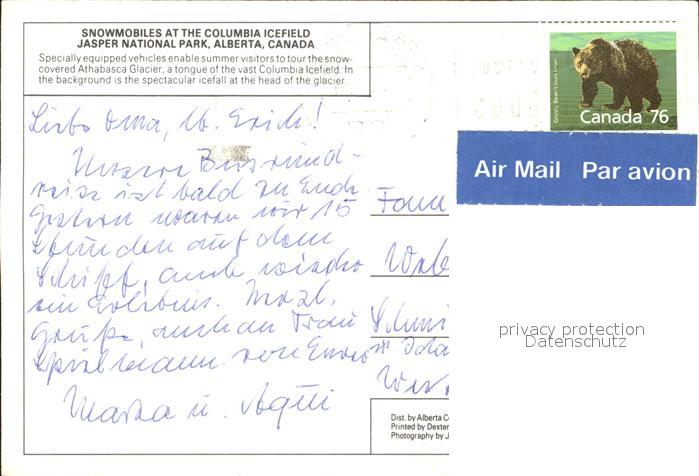 SNOWMOBILES AT THE COLUMBIA ICEFIELD
JASPER NATIONAL PARK, ALBERTA, CANADA
Specially equipped vehicles enable summer visitors to tour the snow-
covered Athabasca Glacier, a tongue of the vast Columbia Icefield. In
the background is the spectacular icefall at the head of the glacier.
Grizzly Bear/Ours brun
Canada 76
Air Mail Par avion
Liebe Oma, lb. Erich!
Unsere Busrund-
reise ist bald zu Ende
Gestern waren wir 15
Stunden auf dem
Schiff, auch wieder
ein Erlebnis. Herzl.
Grüße, auch an Frau
Spielmann von Eurer
u.
Fam
privacy protection
Datenschutz
Dist. by Alberta C
Printed by Dexter
Photography by J